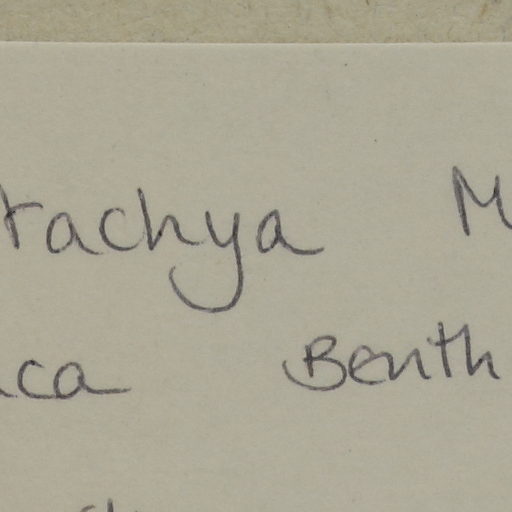 tachya M
ca Benth